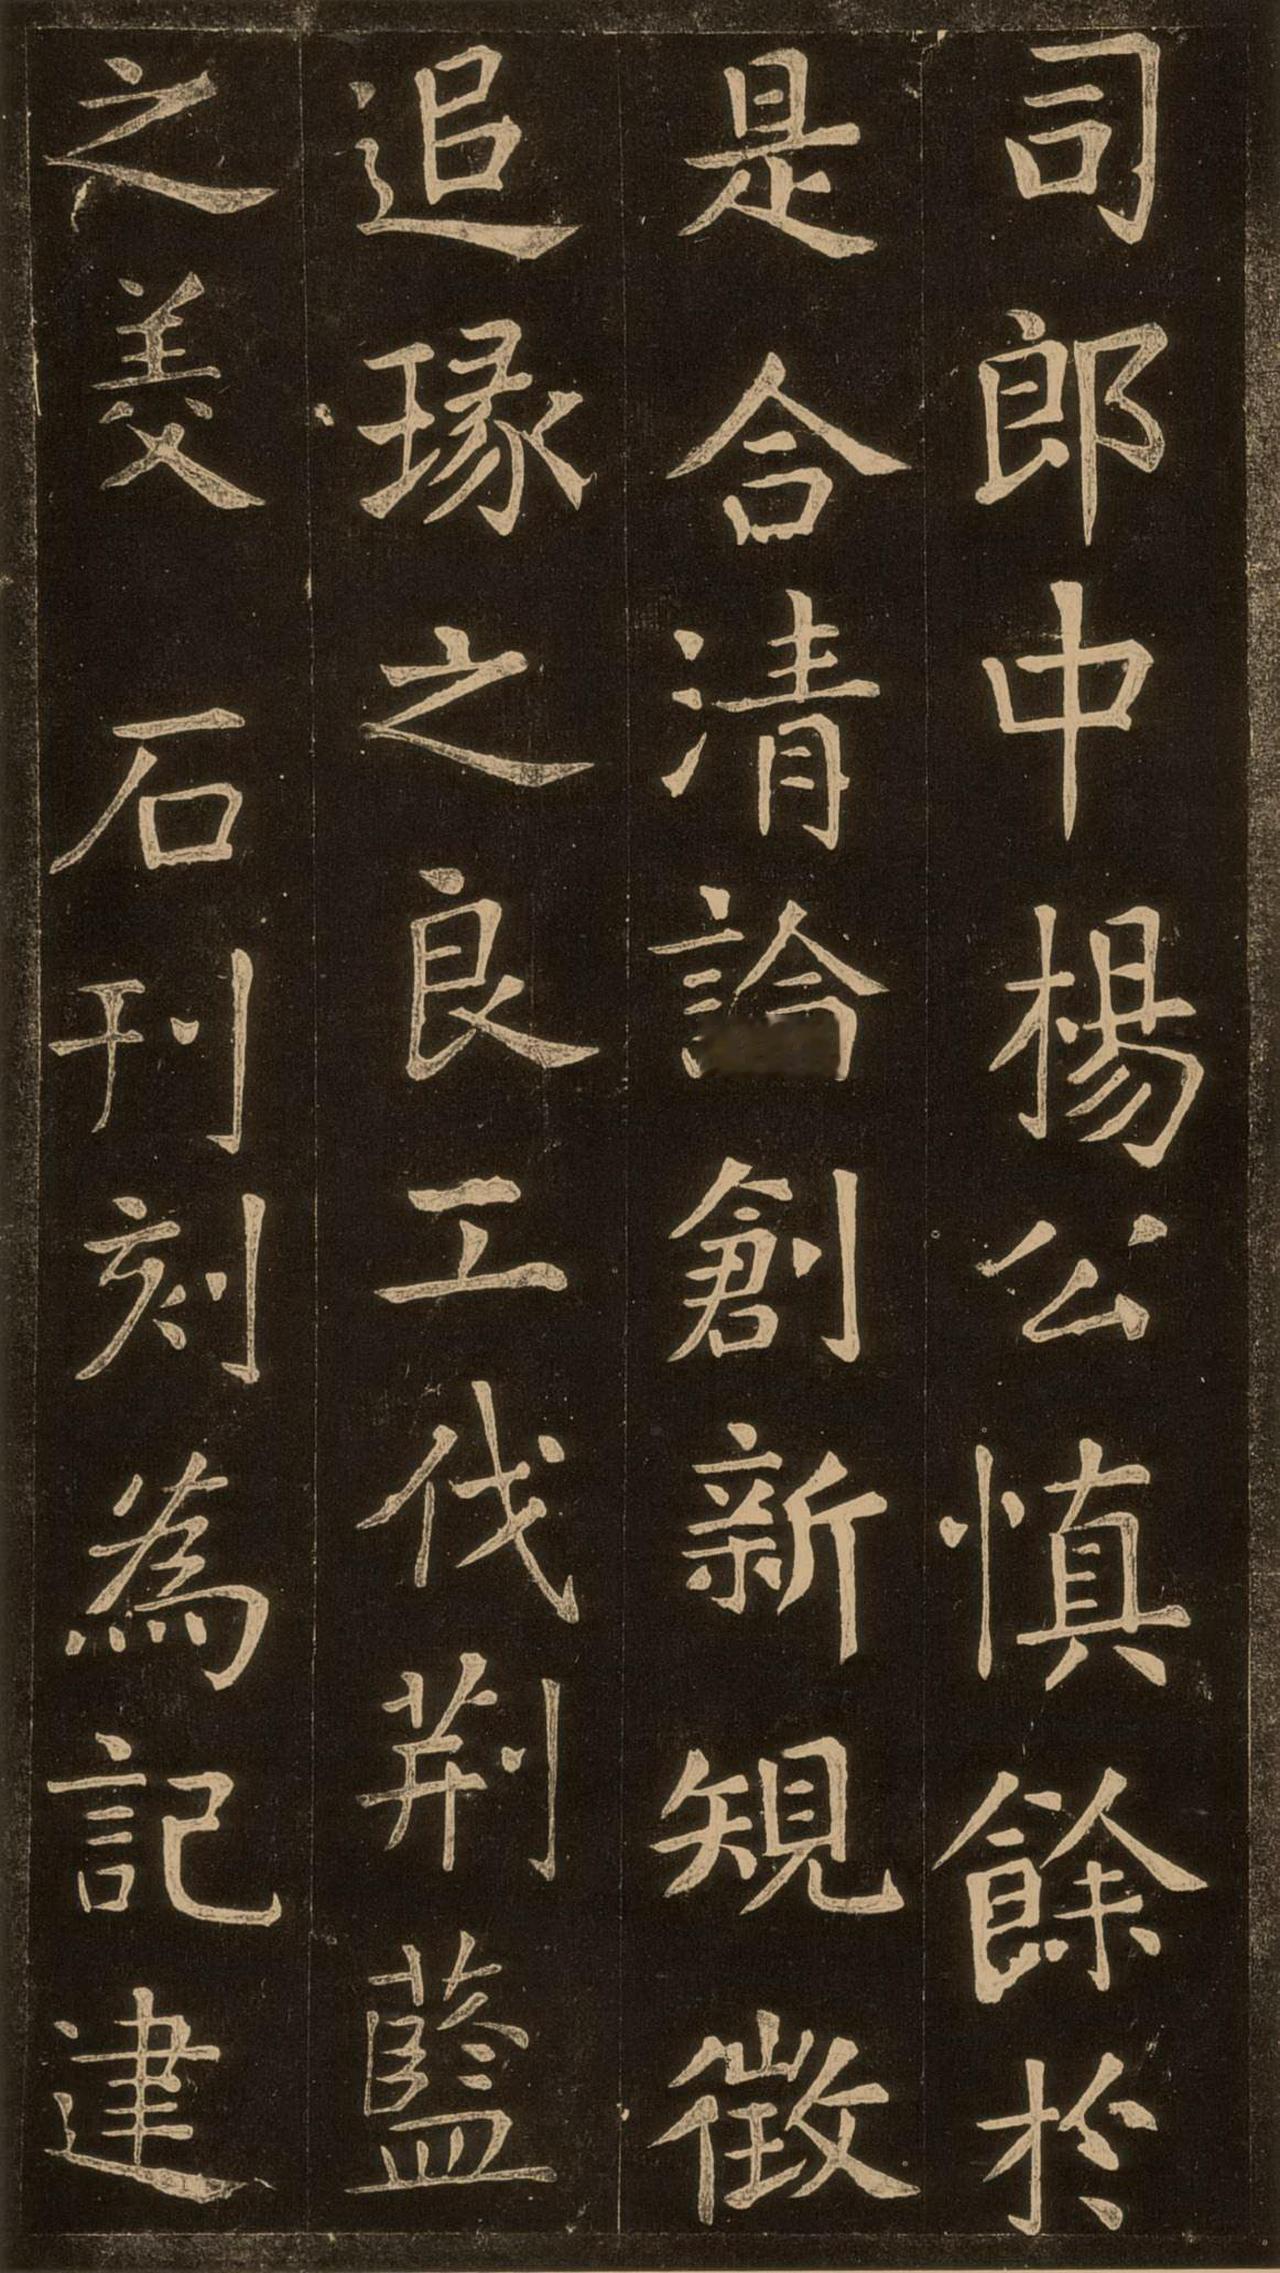 司郎中楊公慎餘於
是合清創新䂓徵
追瑑之良工伐荆藍
之美石刊刻為記建